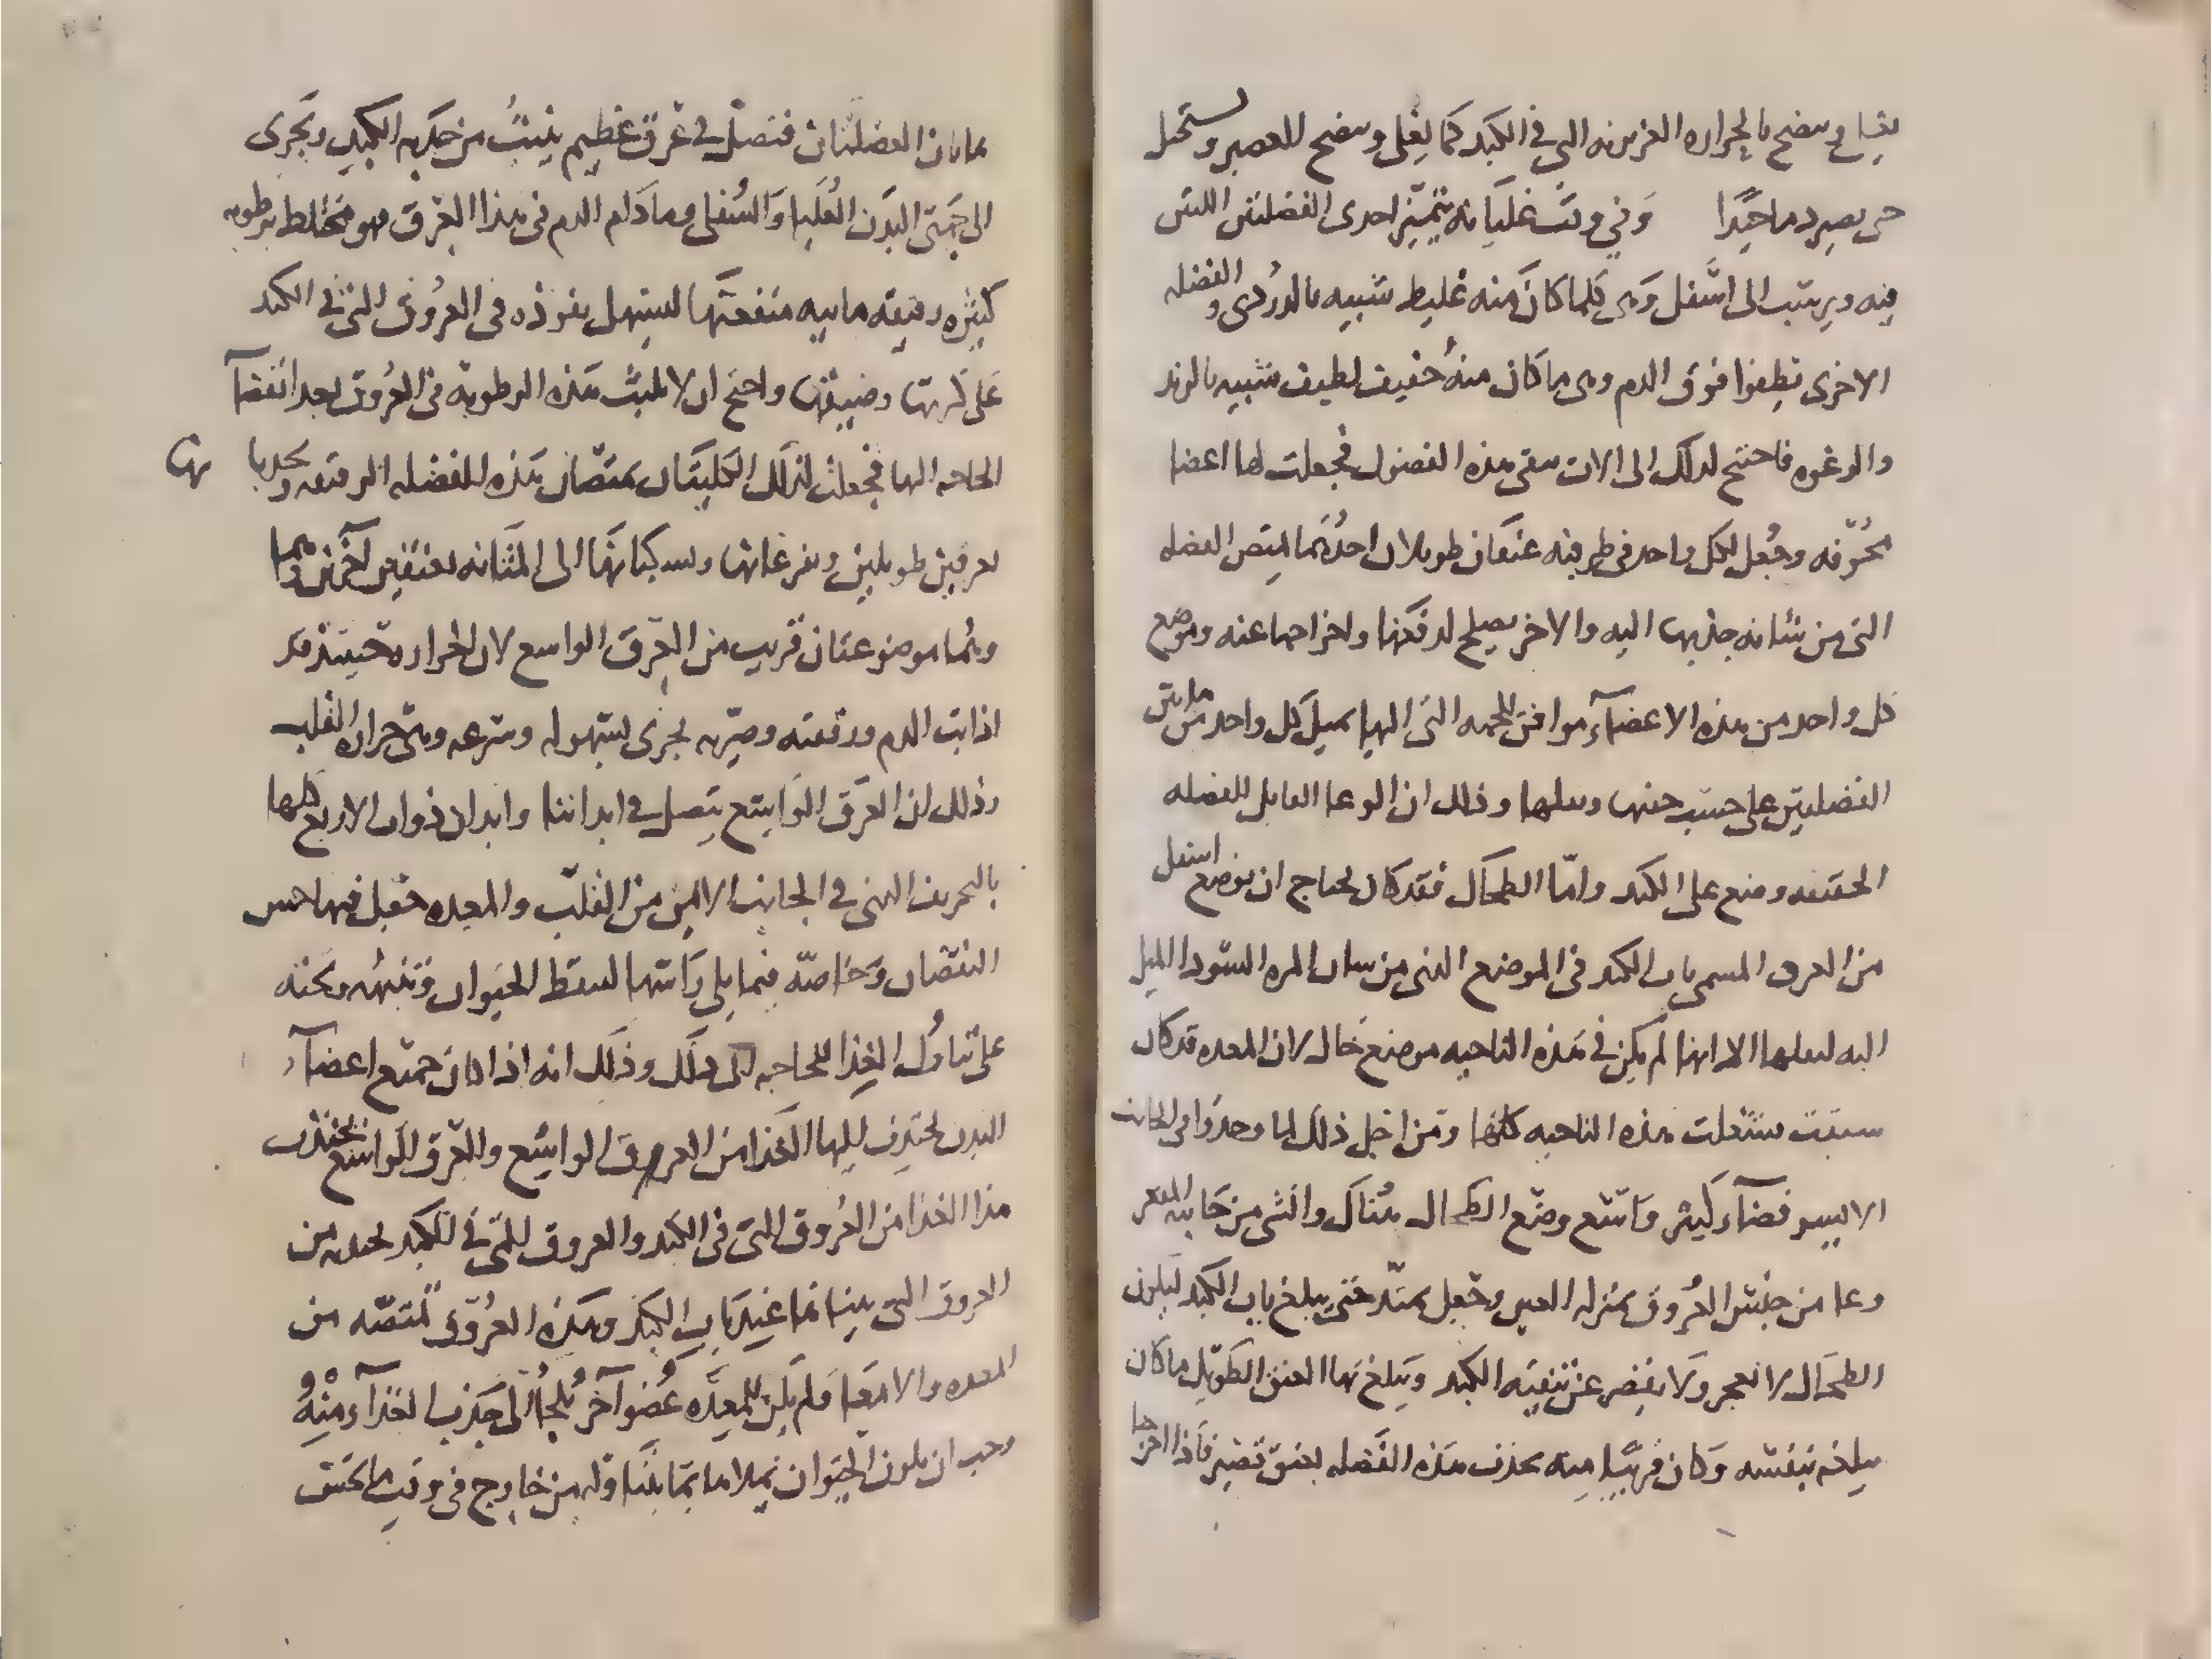 يغلي وينضج بالحراره الغريزيه التي في الكبد كما يغلي وينضج العصير ويستحيل
حتى يصير دما جيدا وفي وقت غليانه يتميز احدى الفضلتين اللتين
فيه ويرسب الى اسفل وهي كلما كان منه غليظ شبيه بالدردي والفضله
الاخرى تطفوا فوق الدم وهي ما كان منه خفيف لطيف شبيه بالزبد
والرغوه فاحتيج لذلك الى الات تنقي هذه الفضول فجعلت لها اعضا
مجوفه وجعل لكل واحد في طرفيه عنقان طويلان احدهما يمتص الفضله
التي من شانه جذبها اليه والاخر يصلح لدفعها واخراجها عنه وموضع
كل واحد من هذه الاعضآء موافق للجهه التي اليها يميل كل واحد من هاتين
الفضلتين على حسب خفتها وثقلها وذلك ان الوعا القابل للفضله
الخفيفه وضع على الكبد واما الطحال فقد كان يحتاج ان يوضع اسفل
من العرق المسمى باب الكبد في الموضع الذي من شان المره السودا الميل
اليه لثقلها الا انها لم يكن في هذه الناحيه موضع خال لان المعده قد كان
سبقت شغلت هذه الناحيه كلها ومن اجل ذلك لما وجدوا في الجانب
الايسر فضآء كثير واسع وضع الطحال هناك وانشى من جانبه المقعر
وعا من جنس العروق بمنزله العنق وجعل يمتد حتى يبلغ باب الكبد ليكون
الطحال لا يعجز ولا يقصر عن تنقيه الكبد ويبلغ بهاا العنق الطويل ما كان
يبلغه بنفسه وكان قريبا منه يجذب هذه الفضله بعنق قصير فاذا اخرجا
هاتان الفضلتان فتصل في عرق عظيم ينبت من حدبه الكبد ويجرى
الى جهتي البدن العليا والسفلى وما دام الدم في هذا العرق فهو مختلط برطوبه
كثيره رقيقه ماييه منفعتها ليسهل نفوذه في العروق التي في الكبد
على كثرتها وضيقها واحتج ان لا تلبث هذه الرطوبه في العروق بعد انقضآ
الحاجه اليها فجعلت لذلك الكليتان يمتصان هذه الفضله الرقيقه ويجذبا نها
بعرقين طويلين ويفرغانها ويسكبانها الى المثانه بعنقين اخرين وهما
وهما موضوعتان قريب من العرق الواسع لان الحراره حينئذ قد
اذابت الدم ورققته وصيرته يجرى بسهوله وسرعه وهي حراره القلب
وذلك ان العرق الواسع يتصل في ابداننا وابدان ذوات الاربع كلها
بالتجويف الذي في الجانب الايمن من القلب والمعده جعل فيها حس
النقصان وخاصه فيما يلي راسها ليتيقظ الحيوان وتنبهه وتحثه
على تناول الغذا للحاجه الى ذلك وذلك انه اذا كان جميع اعضآء
البدن تجتذب اليها الغذا من العروق الواسع والعرق الواسع يجتذب
هذا الغذا من العروق التي في الكبد والعروق التي في الكبد تجذبه من
العروق التي بينا نها غير باب الكبد وهذه العروق تمتصه من
المعده والامعا فلم يكن للمعده عضو آخر تلجأ الى جذب الغذآء منه
وجب ان يكون الحيوان يملاها بما يتناوله من خارج في وقت ما تحس